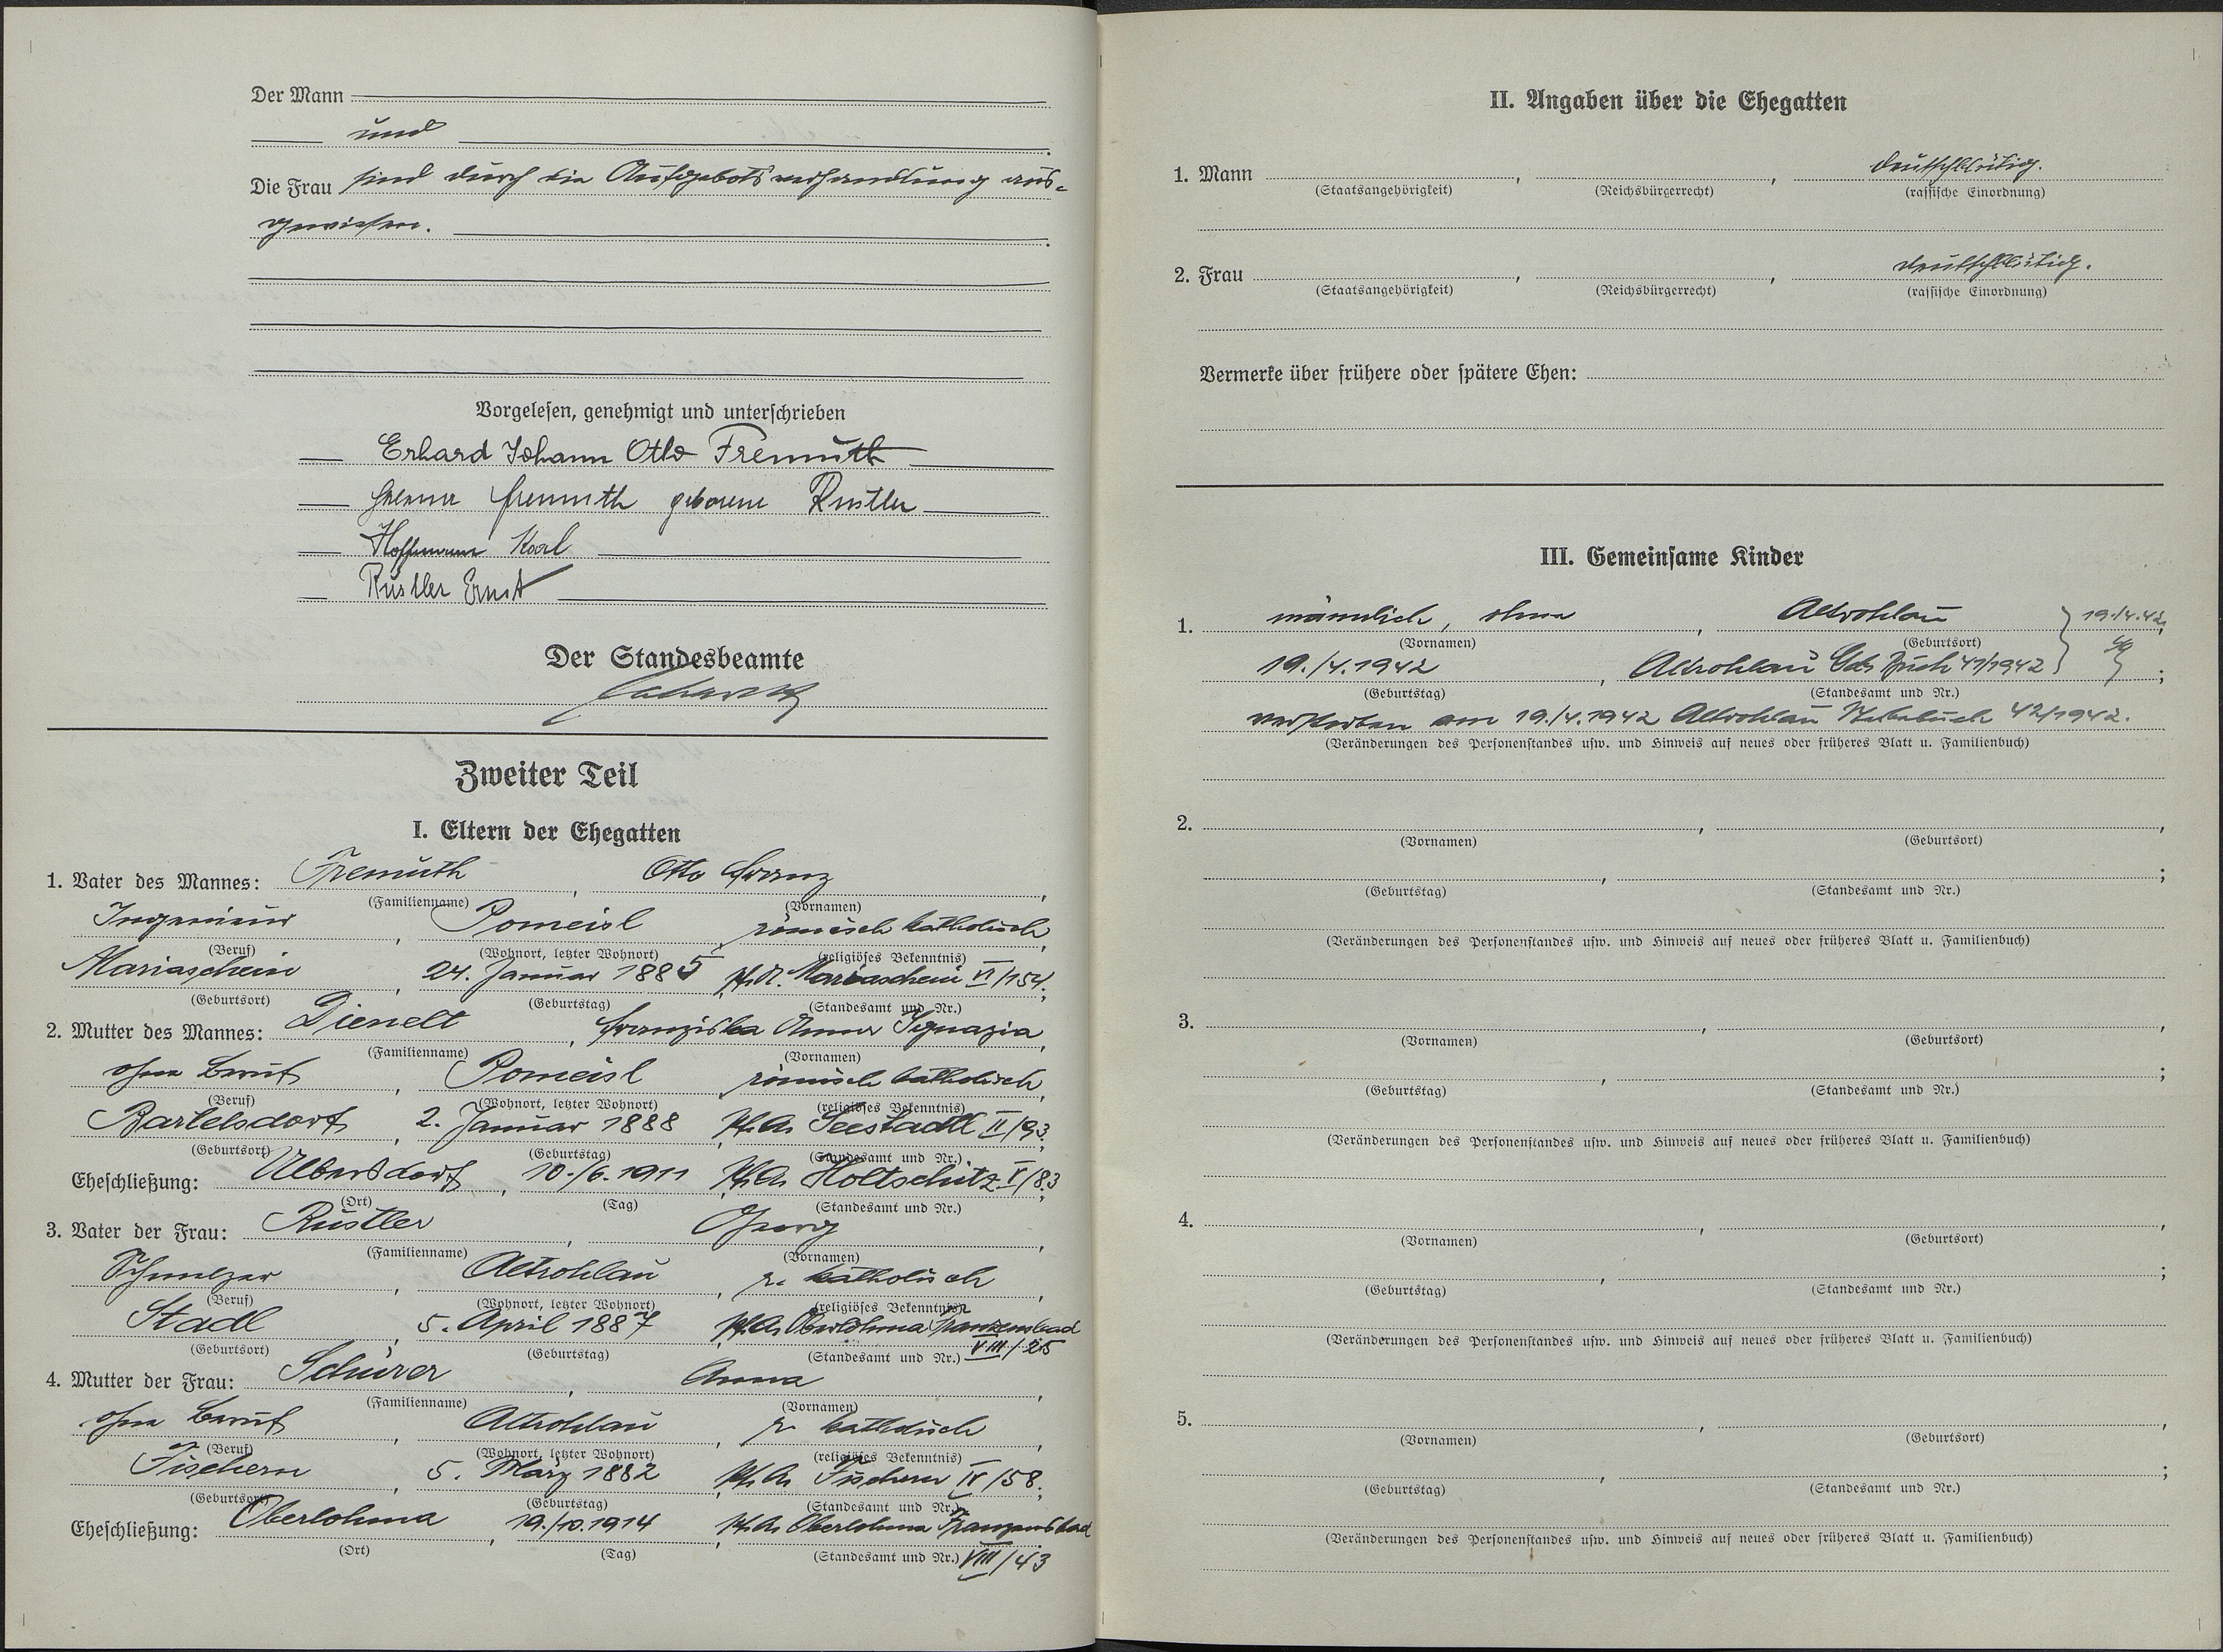 Der Mann
und
Die Frau sind durch die Aufgebotsverhandlung aus=
gewiesen.
Vorgelesen, genehmigt und unterschrieben
Erhard Johann Otto Fremuth
Fremuth geborene Rustler
Hoffmann Karl
Rustler Ernst
Der Standesbeamte
Zweiter Teil
I. Eltern der Ehegatten
1. Vater des Mannes: Fremuth, Otto Franz,
(Familienname) (Vornamen)
Ingenieur, Pomeisl, römisch katholisch,
(Beruf) (Wohnort, letzter Wohnort) (religiöses Bekenntnis)
Mariaschein, 24. Januar 1885, Pf.A. Mariaschein VI/154.;
(Geburtsort) (Geburtstag) (Standesamt und Nr.)
2. Mutter des Mannes: Dienelt, Franziska Anna Ignazia,
(Familienname) (Vornamen)
ohne Beruf, Pomeisl, römisch katholisch,
(Beruf) (Wohnort, letzter Wohnort) (religiöses Bekenntnis)
Bartelsdorf, 2. Januar 1888, Pf.A. Seestadtl II/93;
(Geburtsort) (Geburtstag) (Standesamt und Nr.)
Eheschließung: Ulbersdorf, 10./6.1911, Pf.A. Holtschitz I/83;
(Ort) (Tag) (Standesamt und Nr.)
3. Vater der Frau: Rustler, Georg,
(Familienname) (Vornamen)
Schmelzer, Altrohlau, r. katholisch,
(Beruf) (Wohnort, letzter Wohnort) (religiöses Bekenntnis)
Stadl, 5. April 1887, Pf.A. Oberlohma Franzensbad
(Geburtsort) (Geburtstag) (Standesamt und Nr.) VIII/25
4. Mutter der Frau: Schürer, Anna,
(Familienname) (Vornamen)
ohne Beruf, Altrohlau, r. katholisch,
(Beruf) (Wohnort, letzter Wohnort) (religiöses Bekenntnis)
Fischern, 5. März 1882, Pf.A. Fischern IV/58.;
(Geburtsort) (Geburtstag) (Standesamt und Nr.)
Eheschließung: Oberlohma, 19./10.1914, Pf.A. Oberlohma Franzensbad
(Ort) (Tag) (Standesamt und Nr.) VIII/43
II. Angaben über die Ehegatten
1. Mann, , deutschblütig.
(Staatsangehörigkeit) (Reichsbürgerrecht) (rassische Einordnung)
2. Frau, , deutschblütig.
(Staatsangehörigkeit) (Reichsbürgerrecht) (rassische Einordnung)
Vermerke über frühere oder spätere Ehen:
III. Gemeinsame Kinder
1. männlich, ohne, Altrohlau 19./4.42,
(Vornamen) (Geburtsort)
19./4.1942, Altrohlau Geb. Buch 41/1942;
(Geburtstag) (Standesamt und Nr.)
verstorben am 19./4.1942 Altrohlau Sterbebuch 42/1942.
(Veränderungen des Personenstandes usw. und Hinweis auf neues oder früheres Blatt u. Familienbuch)
2. , ,
(Vornamen) (Geburtsort)
, ;
(Geburtstag) (Standesamt und Nr.)
(Veränderungen des Personenstandes usw. und Hinweis auf neues oder früheres Blatt u. Familienbuch)
3. , ,
(Vornamen) (Geburtsort)
, ;
(Geburtstag) (Standesamt und Nr.)
(Veränderungen des Personenstandes usw. und Hinweis auf neues oder früheres Blatt u. Familienbuch)
4. , ,
(Vornamen) (Geburtsort)
, ;
(Geburtstag) (Standesamt und Nr.)
(Veränderungen des Personenstandes usw. und Hinweis auf neues oder früheres Blatt u. Familienbuch)
5. , ,
(Vornamen) (Geburtsort)
, ;
(Geburtstag) (Standesamt und Nr.)
(Veränderungen des Personenstandes usw. und Hinweis auf neues oder früheres Blatt u. Familienbuch)